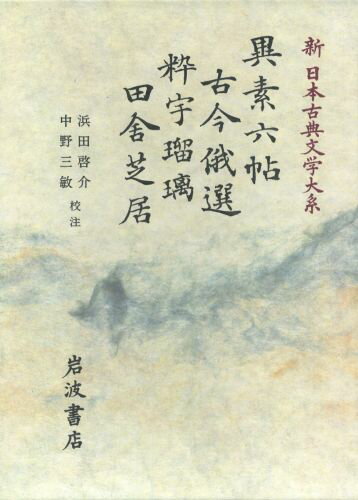 新 日本古典文学大系
異素六帖
古今俄選
粋宇瑠璃
田舎芝居
浜田啓介
中野三敏 校注
岩波書店